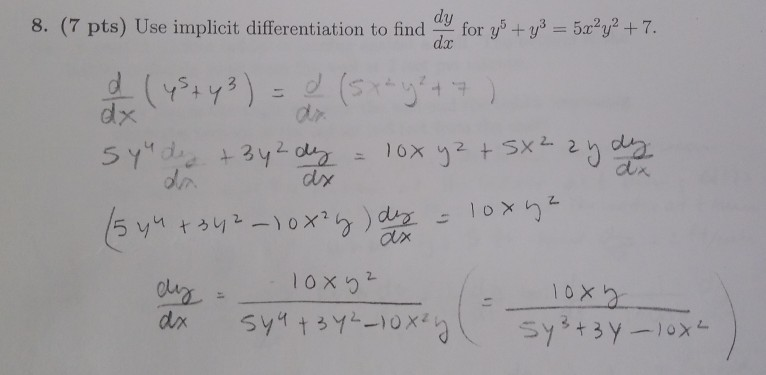 8. (7 pts) Use implicit differentiation to find dy/dx for y⁵ + y³ = 5x²y² + 7.
d/dx (y⁵ + y³) = d/dx (5x²y² + 7)
5y⁴ dy/dx + 3y² dy/dx = 10x y² + 5x² 2y dy/dx
(5y⁴ + 3y² − 10x²y) dy/dx = 10xy²
dy/dx = 10xy² / (5y⁴ + 3y² − 10x²y) ( = 10xy / (5y³ + 3y − 10x²) )